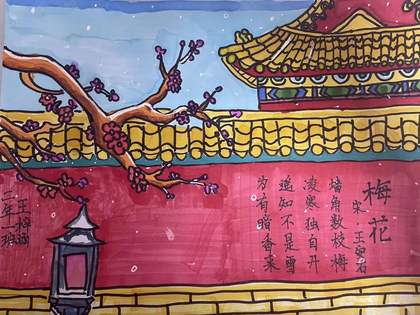 梅花
宋 王安石
墙角数枝梅
凌寒独自开
遥知不是雪
为有暗香来
王梓
二年一班